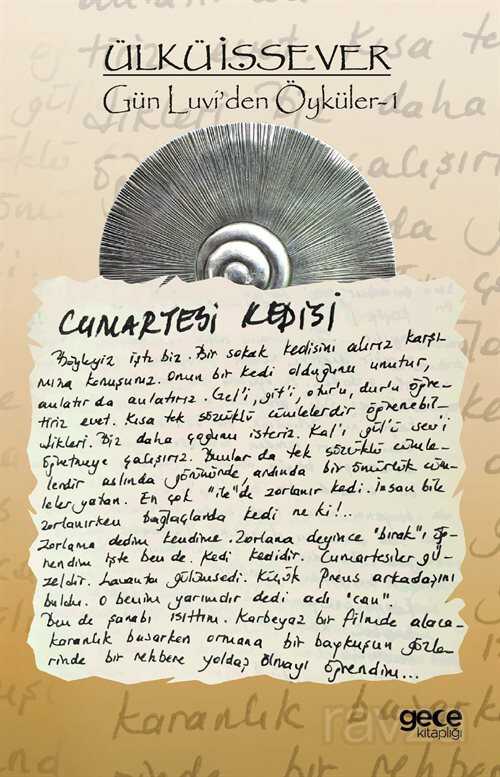 ÜLKÜ İSSEVER
Gün Luvi'den Öyküler-1
CUMARTESİ KEDİSİ
Böyleyiz işte biz. Bir sokak kedisini alırız karşı-
mıza konuşuruz. Onun bir kedi olduğunu unutur,
anlatır da anlatırız. Gel'i, git'i, otur'u, dur'u öğre-
tiriz evet. Kısa tek sözcüklü cümlelerdir öğrenebil-
dikleri. Biz daha çoğunu isteriz. Kal'ı, gül'ü sev'i
öğretmeye çalışırız. Bunlar da tek sözcüklü cümle-
lerdir aslında görünürde, ardında bir ömürlük cüm-
leler yatan. En çok "ile"de zorlanır kedi. İnsan bile
zorlanırken bağlaçlarda kedi ne ki!..
Zorlama dedim kendime. Zorlama deyince "bırak"ı öğ-
rendim işte ben de. Kedi kedidir. Cumartesiler gü-
zeldir. Lavanta gülümsedi. Küçük Prens arkadaşını
buldu. O benim yarimdir dedi adı "can".
Ben de şarabı ısıttım. Karbeyaz bir filmde alaca-
karanlık basarken ormana bir baykuşun gözle-
rinde bir rehbere yoldaş olmayı öğrendim...
karanlık basarken
gece
kitaplığı